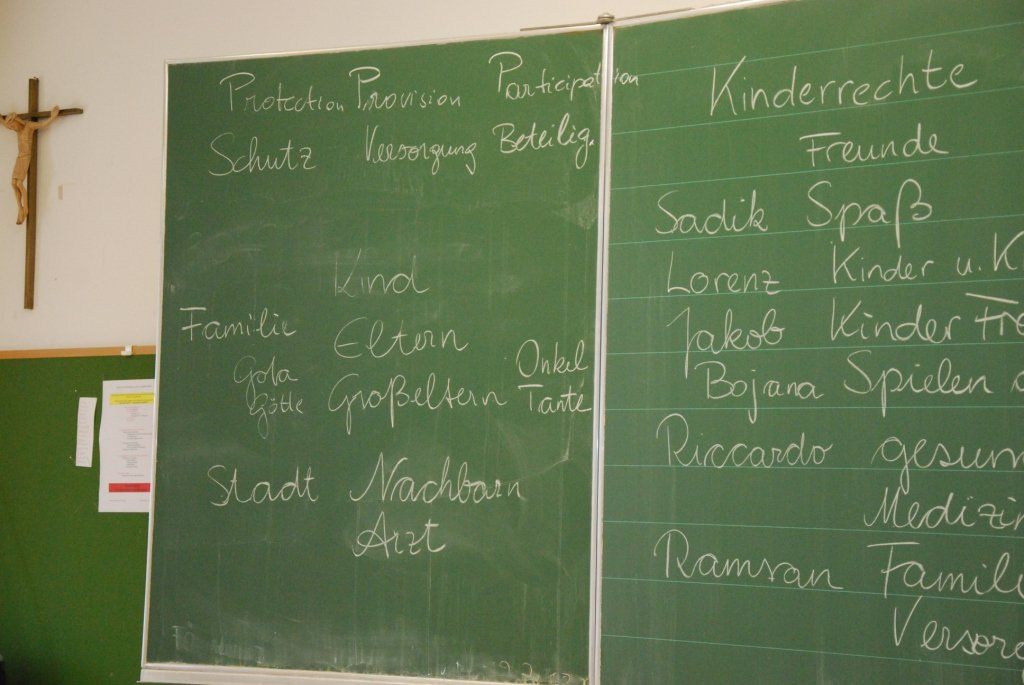 Protection Provision Participation
Schutz Versorgung Beteilig.
Kind
Familie Eltern
Onkel
Gota
Götte Großeltern Tante
Stadt Nachbarn
Arzt
Kinderrechte
Freunde
Sadik Spaß
Lorenz Kinder u. K
Jakob Kinder Fre
Bojana Spielen
Riccardo gesun
Medizin
Ramsan Famili
Versor